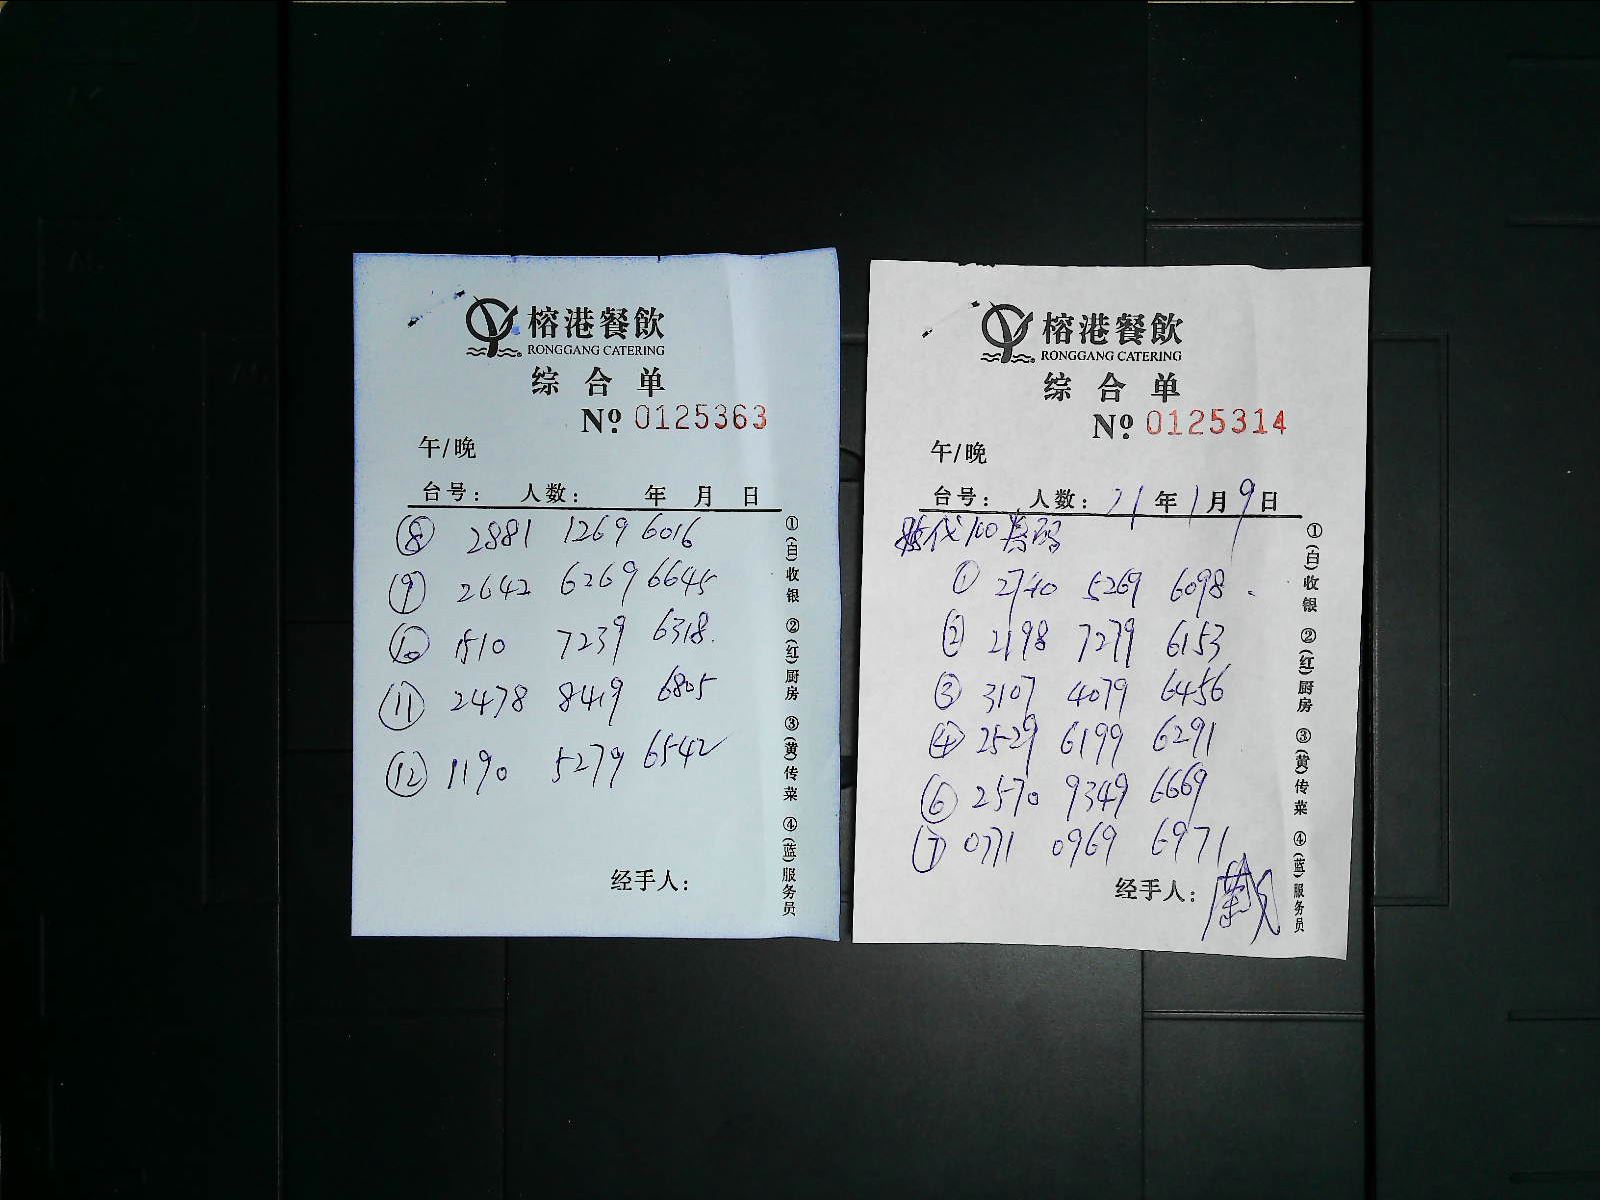 榕港餐飲
RONGGANG CATERING
综合单
Nº 0125363
午/晚
台号: 人数: 年 月 日
⑧ 2881 1269 6016
⑨ 2642 6269 6645
⑩ 1510 7239 6318.
⑪ 2478 8419 6805
⑫ 1190 5279 6542
经手人:
①(白)收银 ②(红)厨房 ③(黄)传菜 ④(蓝)服务员
榕港餐飲
RONGGANG CATERING
综合单
Nº 0125314
午/晚
台号: 人数: 21年1月9日
代100
① 2740 5269 6098.
② 2198 7279 6153
③ 3107 4079 6456
④ 2529 6199 6291
⑥ 2570 9349 6669
⑦ 0771 0969 6971
经手人:
①(白)收银 ②(红)厨房 ③(黄)传菜 ④(蓝)服务员